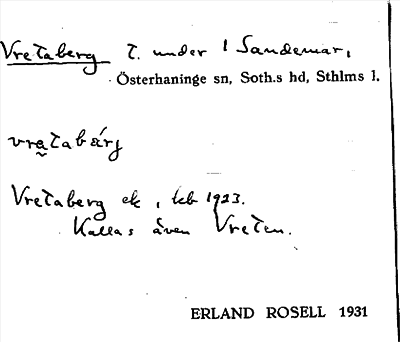 Vretaberg t. under 1 Sandemar,
Österhaninge sn, Soth.s hd, Sthlms l.
vratabärj
Vretaberg ek, kb 1923.
Kallas även Vreten.
ERLAND ROSELL 1931